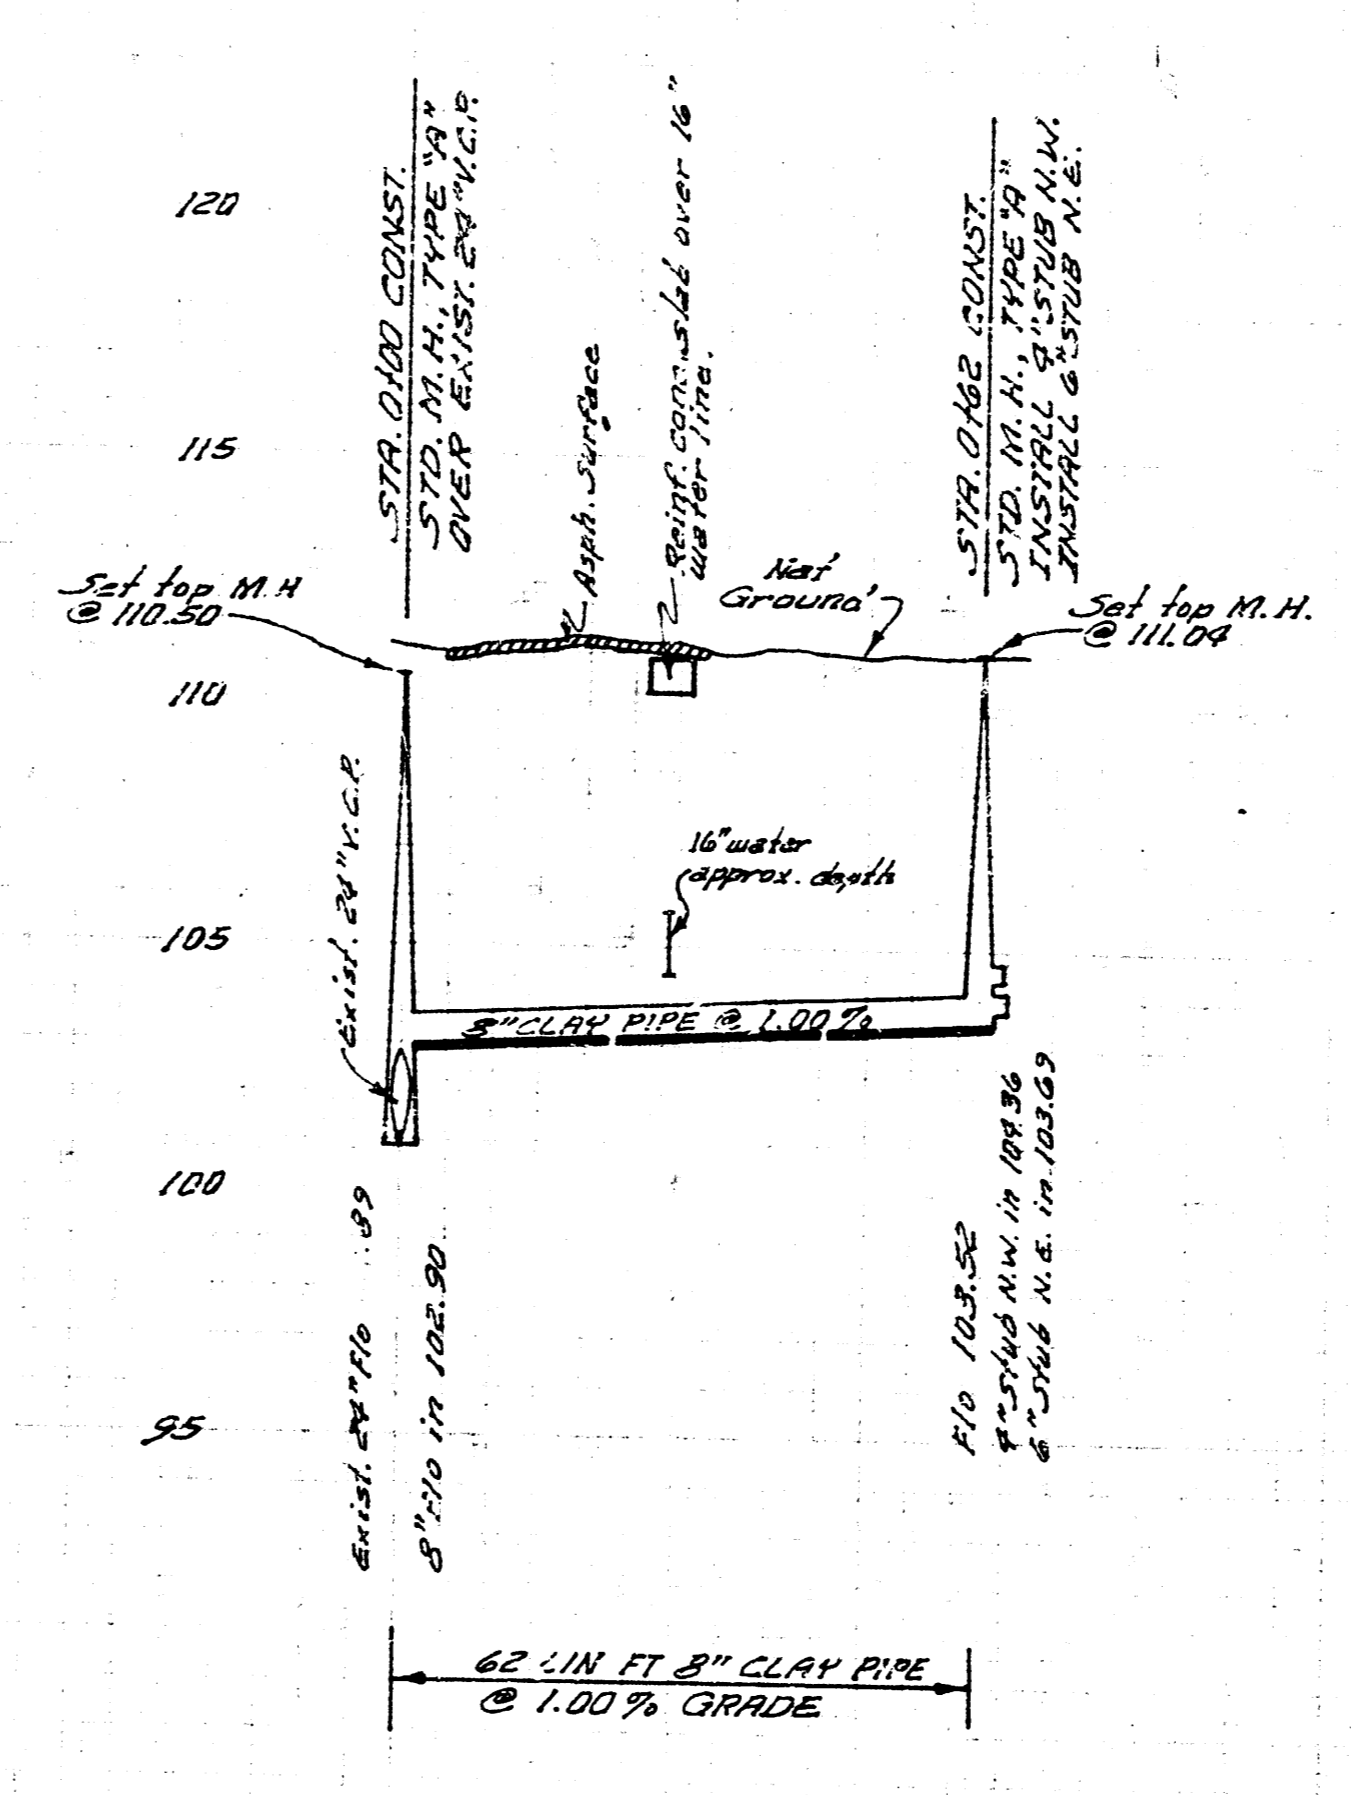 STA. 0+00 CONST.
STD. M.H., TYPE "A"
OVER EXIST. 24" V.C.P.
Asph. Surface
Reinf. conc. slab over 16"
water line.
STA. 0+62 CONST.
STD. M.H., TYPE "A"
INSTALL 4" STUB N.W.
INSTALL 6" STUB N.E.
120
115
110
105
100
95
Set top M.H
@ 110.50
Nat
Ground
Set top M.H.
@ 111.04
Exist. 24" V.C.P.
16" water
approx. depth
8" CLAY PIPE @ 1.00%
Exist. 24" Flo .89
8" Flo in 102.90
Flo 103.52
4" Stub N.W. in 104.36
6" Stub N.E. in 103.69
62 LIN FT 8" CLAY PIPE
@ 1.00% GRADE